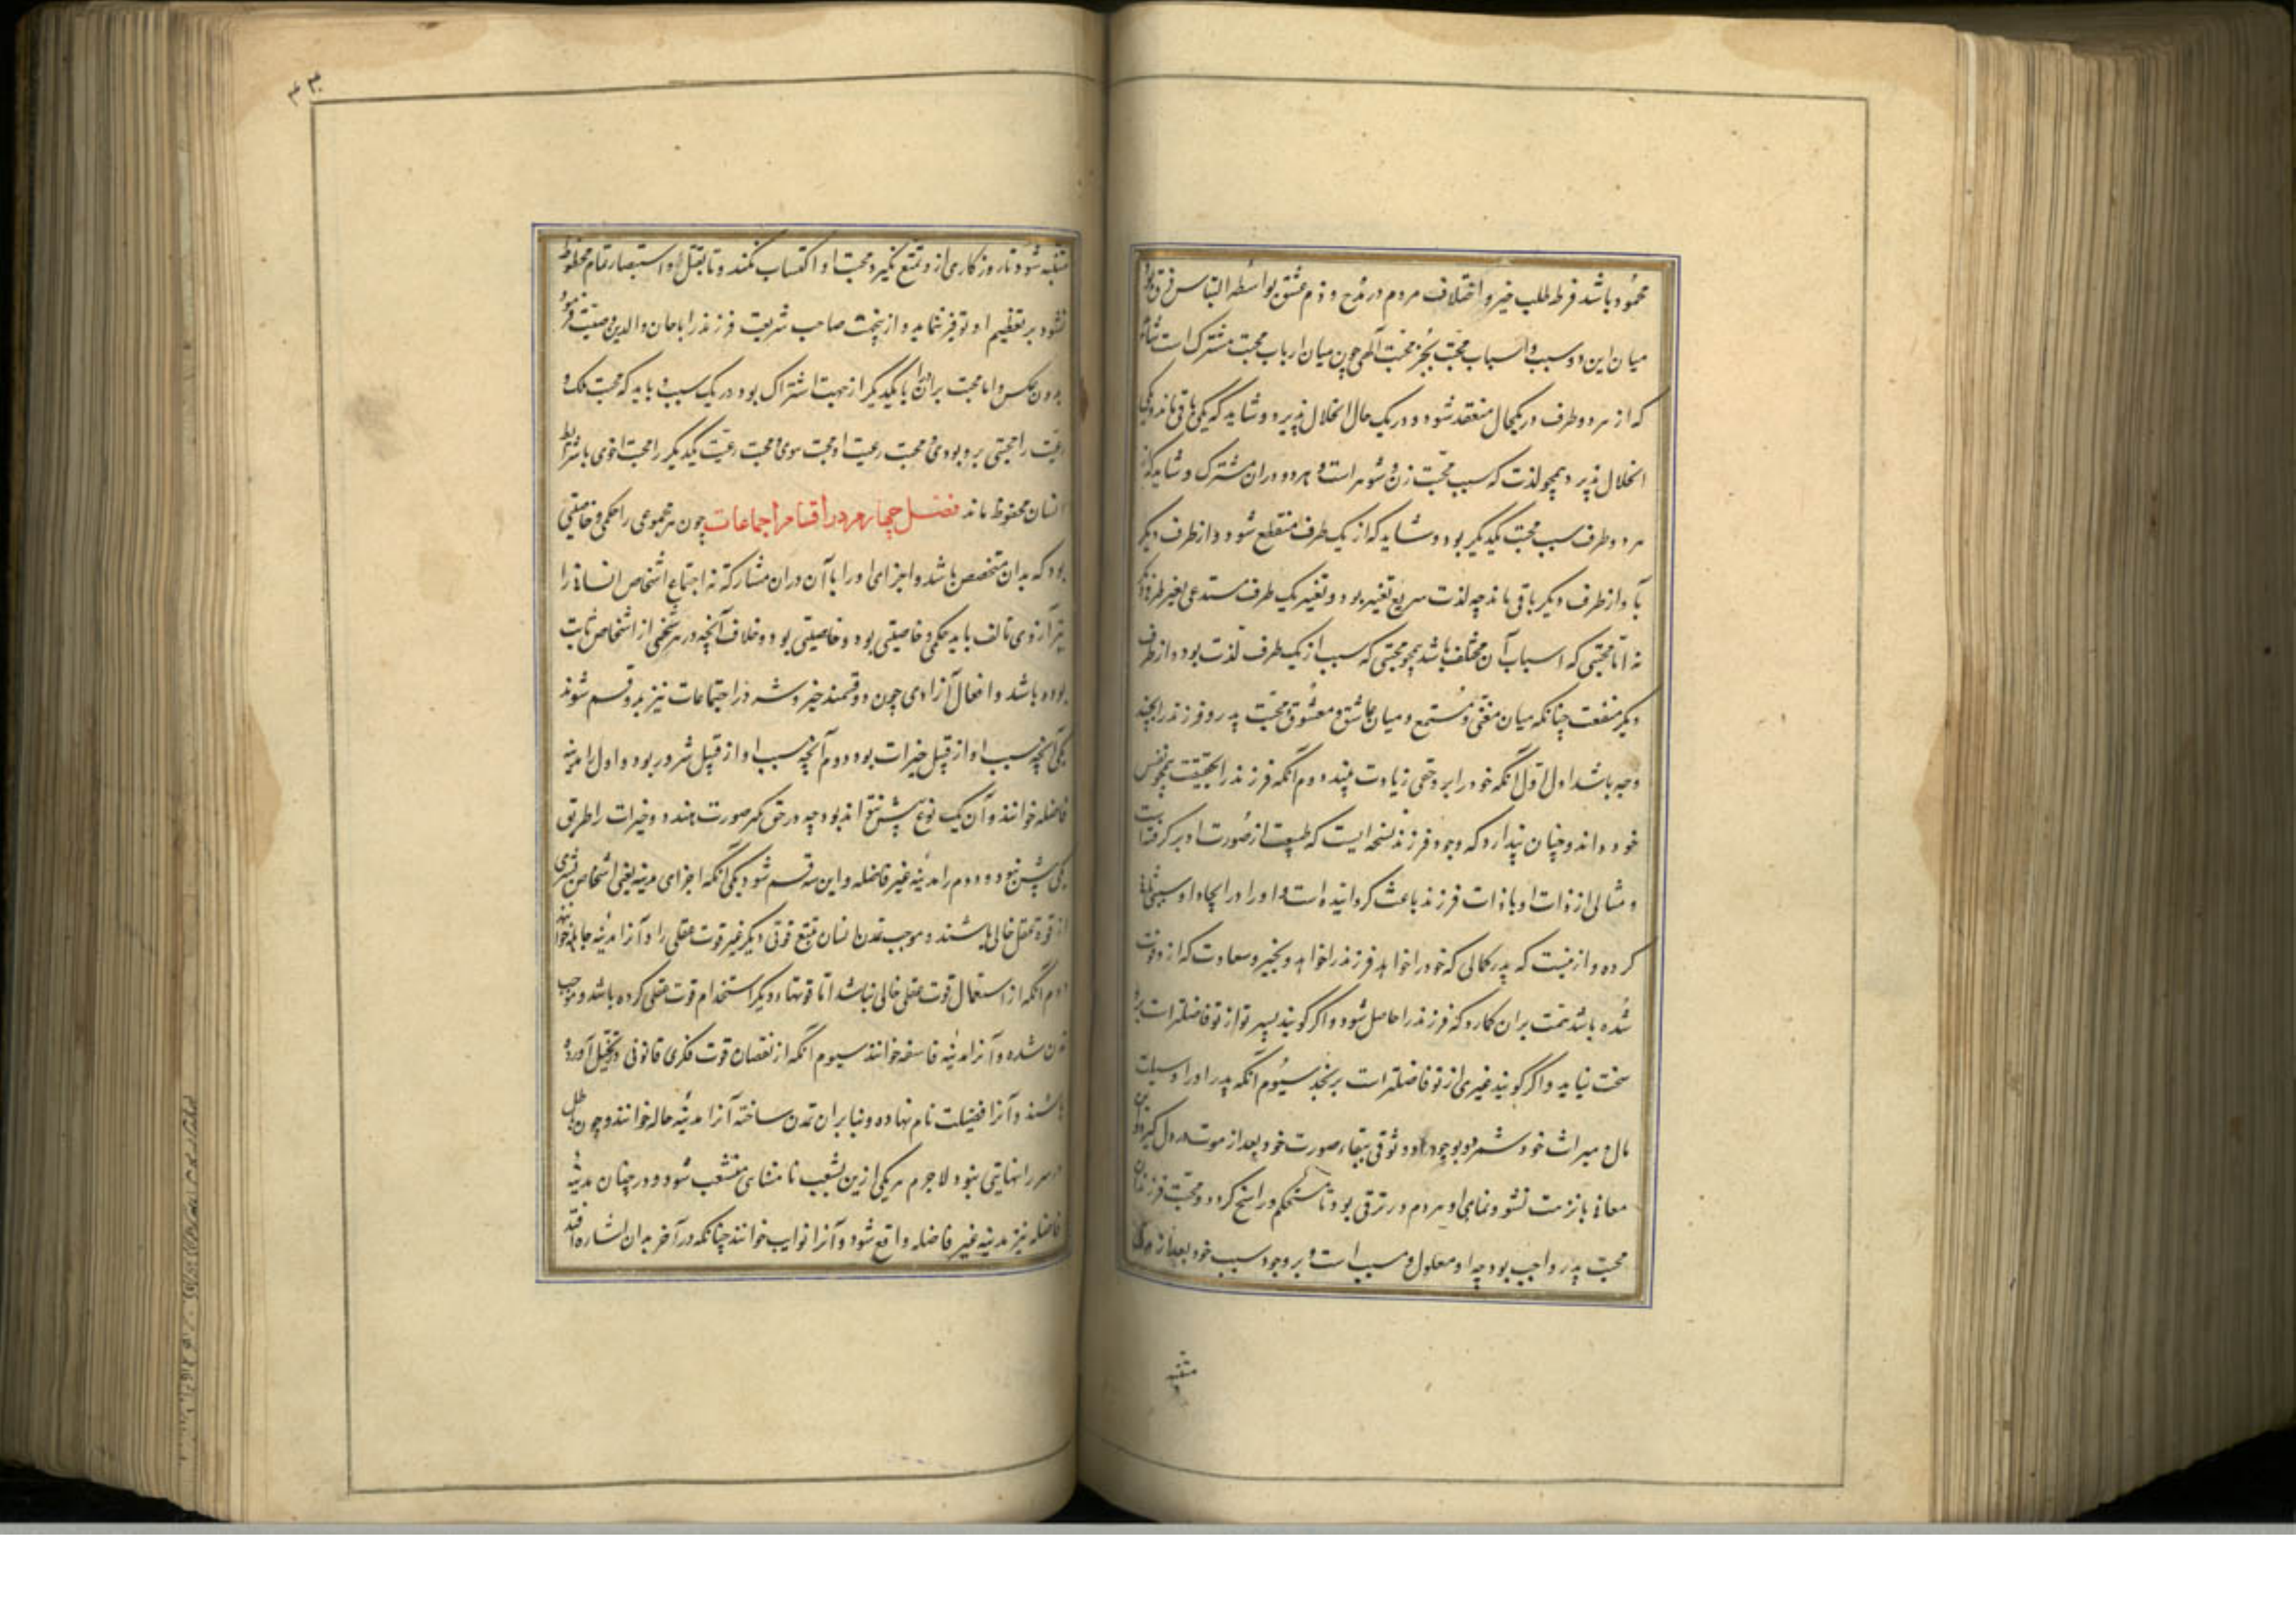 محمود باشد فرط طلب خیر و اختلاف مردم در مدح و ذم عشق بواسطه التباس فرق بود
میان این دو سبب و اسباب محبت بجز محبت آلهی چون میان ارباب محبت مشترک است شاید
که از هر دو طرف در یکحال منعقد شود و در یک حال انحلال پذیرد و شاید که یکی باقی ماند و یکی
انحلال پذیرد همچو لذت که سبب محبت زن و شوهر است و هر دو در ان مشترک و شاید که از
هر دو طرف سبب محبت یکدیگر بود و شاید که از یک طرف منقطع شود و از طرف دیگر
یا و از طرف دیگر باقی ماند چه لذت سریع تغیر بود و تغیر یک طرف مستدعی تغیر طرف دیگر
نه اما محبتی که اسباب آن مختلف باشد همچو محبتی که سبب از یک طرف لذت بود و از طرف
دیگر منفعت چنانکه میان مغنی و مستمع و میان عاشق و معشوق و محبت پدر و فرزند را بچند
وجه باشد اول اول آنکه خود را برو حقی زیادت بیند و دوم آنکه فرزند را بحقیقت همچو نفس
خود داند و چنان پندارد که وجود فرزند نسخه ایست که طبیعت از صورت او بر گرفته است
و مثالی از ذات او با ذات فرزند باعث گردانیده است و او را در ایجاد او سببی ثانی
کرده و ازینست که پدر کمالی که خود را خواهد فرزند را خواهد و بخیر و سعادت که از و فوت
شده باشد همت بران گمارد که فرزند را حاصل شود و اگر گویند پسر تو از تو فاضلتر است برو
سخت نیاید و اگر گویند غیری از تو فاضلتر است برنجد سیوم آنکه پدر او را وسیلت
مال و میراث خود شمرد و بوجود او وثوقی ببقاء صورت خود بعد از موت در دل گیرد و این
معانی بانزمت نشو و نمای او هر دم در ترقی بود تا مستحکم و راسخ گردد و محبت فرزندان
محبت پدر واجب بود چه او معلول و مسبب است و بر وجود سبب خود بعد از مدتی
متنبه
متنبه شود تا روزگاری از و تمتع نگیرد محبت او اکتساب نکند و تا بعقل و استبصار تمام محظوظ
نشود بر تعظیم او توفر ننماید و ازینجهت صاحب شریعت فرزند را باحسان والدین وصیت فرمود
بدون عکس و اما محبت برادران با یکدیگر از جهت اشتراک بود در یک سبب و باید که محبت ملک و
رعیت را محبتی پدر بودی و محبت رعیت او محبت سوی و محبت رعیت یکدیگر را محبت اخوی با شرایط
انسان محفوظ ماند فصل چهارم در اقسام اجماعات چون هر مجموعی را حکمی و خاصیتی
بود که بدان متخصص باشد و اجزای او را با آن دران مشارکة نه اجتماع اشخاص انسانی را
نیز از روی تالف باید حکمی و خاصیتی بود و خاصیتی بود و خلاف آنچه در هر شخصی از اشخاص ثابت
بوده باشد و افعال آزادی چون دو قسمند خیر و شر در اجتماعات نیز بدو قسم شوند
یکی آنچه سبب او از قبیل خیرات بود و دوم آنچه سبب او از قبیل شرور بود و اول را مدینه
فاضله خوانند و آن یک نوع پیش نتواند بود چه در حق کر صورت بندد و خیرات را طریق
یکی بیش نبود و دوم را مدینه غیر فاضله و این سه قسم شود یکی آنکه اجزای مدینه یعنی اشخاص بشری
از قوه تعقل خالی باشند و موجب تمدن انسان تتبع قوتی دیگر غیر قوت عقلی را و آنرا مدینه جاهله خوانند
دوم آنکه از استعمال قوت عقلی خالی نباشد اما قوتهاء دیگر استخدام قوت عقلی کرده باشد و موجب
تمدن شده و آنرا مدینه فاسقه خوانند سیوم آنکه از نقصان قوت فکری قانونی در تخیل آورده
باشند و آنرا فضیلت نام نهاده و بنا بران تمدن ساخته آنرا مدینه ضاله خوانند و چون باطل
و شر را نهایتی نبود لاجرم هر یکی ازین بشعب نا متناهی منشعب شود و در چنان مدینه
فاضله نیز مدینه غیر فاضله واقع شود و آنرا نوابب خوانند چنانکه در آخر بدان اشاره افتد